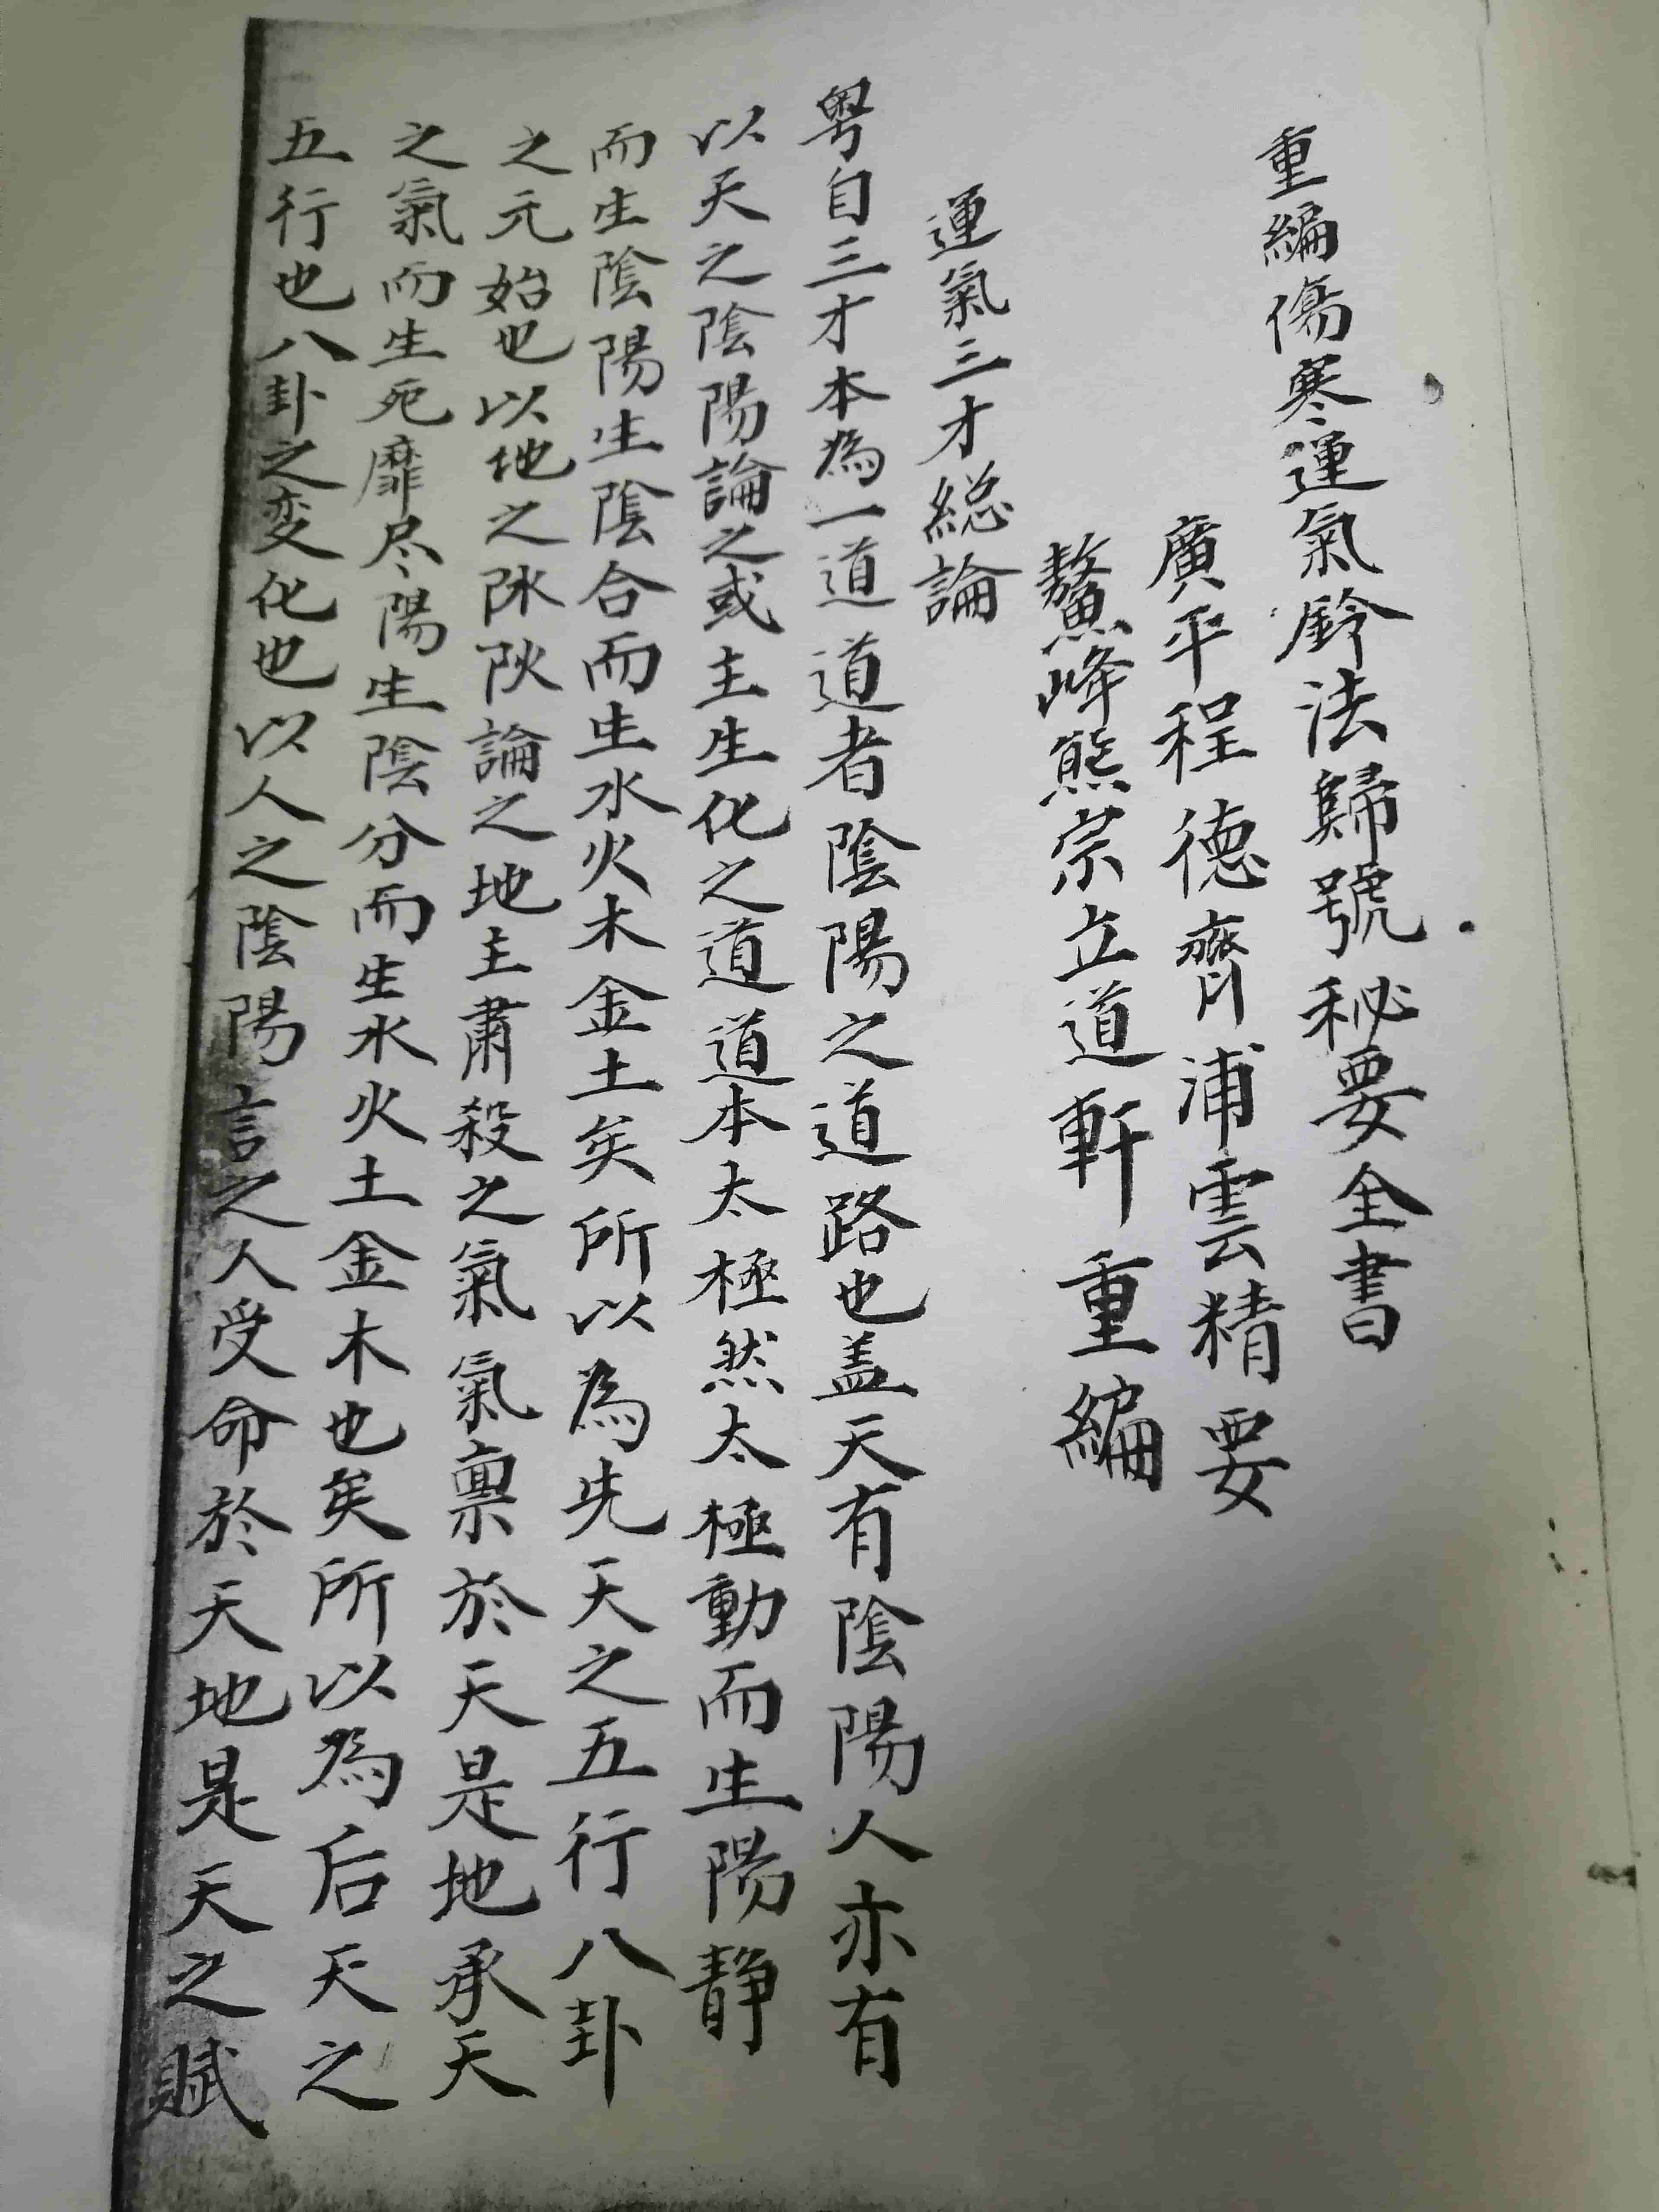 重編傷寒運氣鈐法歸號秘要全書
廣平程德齊浦雲精要
鰲峰熊宗立道軒重編
運氣三才総論
粤自三才本為一道道者陰陽之道路也盖天有陰陽人亦有
以天之陰陽論之或主生化之道道本太極然太極動而生陽静
而生陰陽生陰合而生水火木金土矣所以為先天之五行八卦
之元始也以地之阥阦論之地主肅殺之氣氣禀於天是地承天
之氣而生死靡尽陽生陰分而生水火土金木也矣所以為后天之
五行也八卦之変化也以人之陰陽言之人受命於天地是天之賦